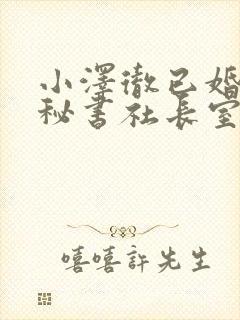 小澤徹已婚
秘書社長室
嘻嘻許先生